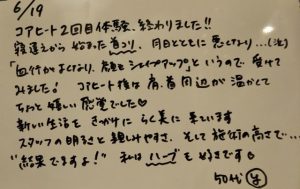 6/19
コアヒート2回目体験、終わりました!!
寝違えから始まった首コリ、月日とともに悪くなり…(泣)
「血行がよくなり、顔もシェイプアップ」というので受けて
みました! コアヒート後は肩首周辺が温かくて
ちょっと嬉しい感覚でした♡
新しい生活をきっかけにらく美に来ています
スタッフの明るさと親しみやすさ、そして施術の高さで…
"結果でますよ!" 私はハーブも好きです♡
50代